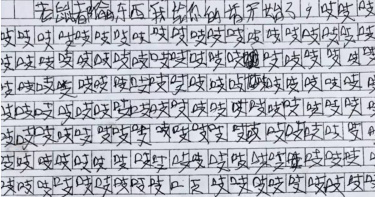 老鼠都偷东西我给你的开始了吱吱吱
吱吱吱吱吱吱吱吱吱吱吱吱吱吱吱吱吱吱吱吱
吱吱吱吱吱吱吱吱吱吱吱吱吱吱吱吱吱吱吱
吱吱吱吱吱吱吱吱吱吱吱吱吱吱吱吱吱吱吱吱
吱吱吱吱吱吱吱吱吱吱吱吱吱吱吱吱吱吱吱吱
吱吱吱吱吱吱吱吱吱吱吱吱吱吱吱吱吱吱吱吱
吱吱吱吱吱吱吱吱吱吱吱吱吱吱吱吱吱吱吱吱
吱吱吱吱吱吱吱吱吱吱吱吱吱吱吱吱吱吱